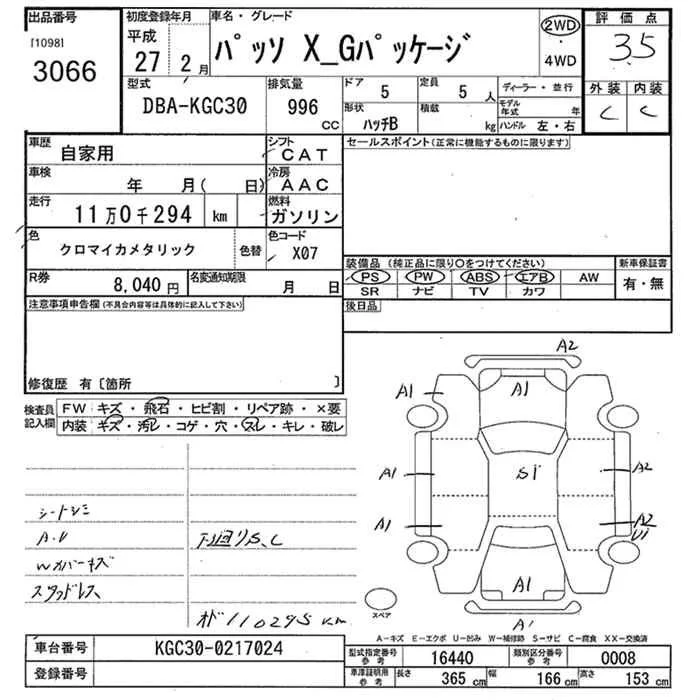 出品番号 初度登録年月 車名・グレード 2WD 評価点
[1098] 平成
3066 27 2月 パッソ X_Gパッケージ ・ 3.5
4WD
型式 排気量 ドア 定員 ディーラー・並行 外装 内装
DBA-KGC30 996 CC 5 5人 モデル年式 年 C C
形状 積載
ハッチB kg ハンドル 左・右
車歴 自家用 シフト CAT セールスポイント(正常に機能するものに限ります)
車検 年 月( 日) 冷房 AAC
走行 11万0千294 km 燃料 ガソリン
色 クロマイカメタリック 色替 色コード X07
装備品(純正品に限り○をつけてください) 新車保証書
R券 8,040円 名変通知期限 月 日 PS PW ABS エアB AW 有・無
SR ナビ TV カワ
注意事項申告欄(不具合内容等は具体的に記入して下さい) 後日品
修復歴 有〔箇所 〕
検査員記入欄 FW キズ・飛石・ヒビ割・リペア跡・×要
内装 キズ・汚レ・コゲ・穴・スレ・キレ・破レ
A2
A1 A1
A1 S1 A2
A1 A2
U1
A1
シートシミ
A.V 下廻りS、C
Wカバーキズ
スタッドレス
オド110295km
スペア
A-キズ E-エクボ U-凹み W-補修跡 S-サビ C-腐食 XX-交換済
車台番号 KGC30-0217024 型式指定番号参考 16440 類別区分番号参考 0008
登録番号 車庫証明用参考 長さ 365cm 幅 166cm 高さ 153cm